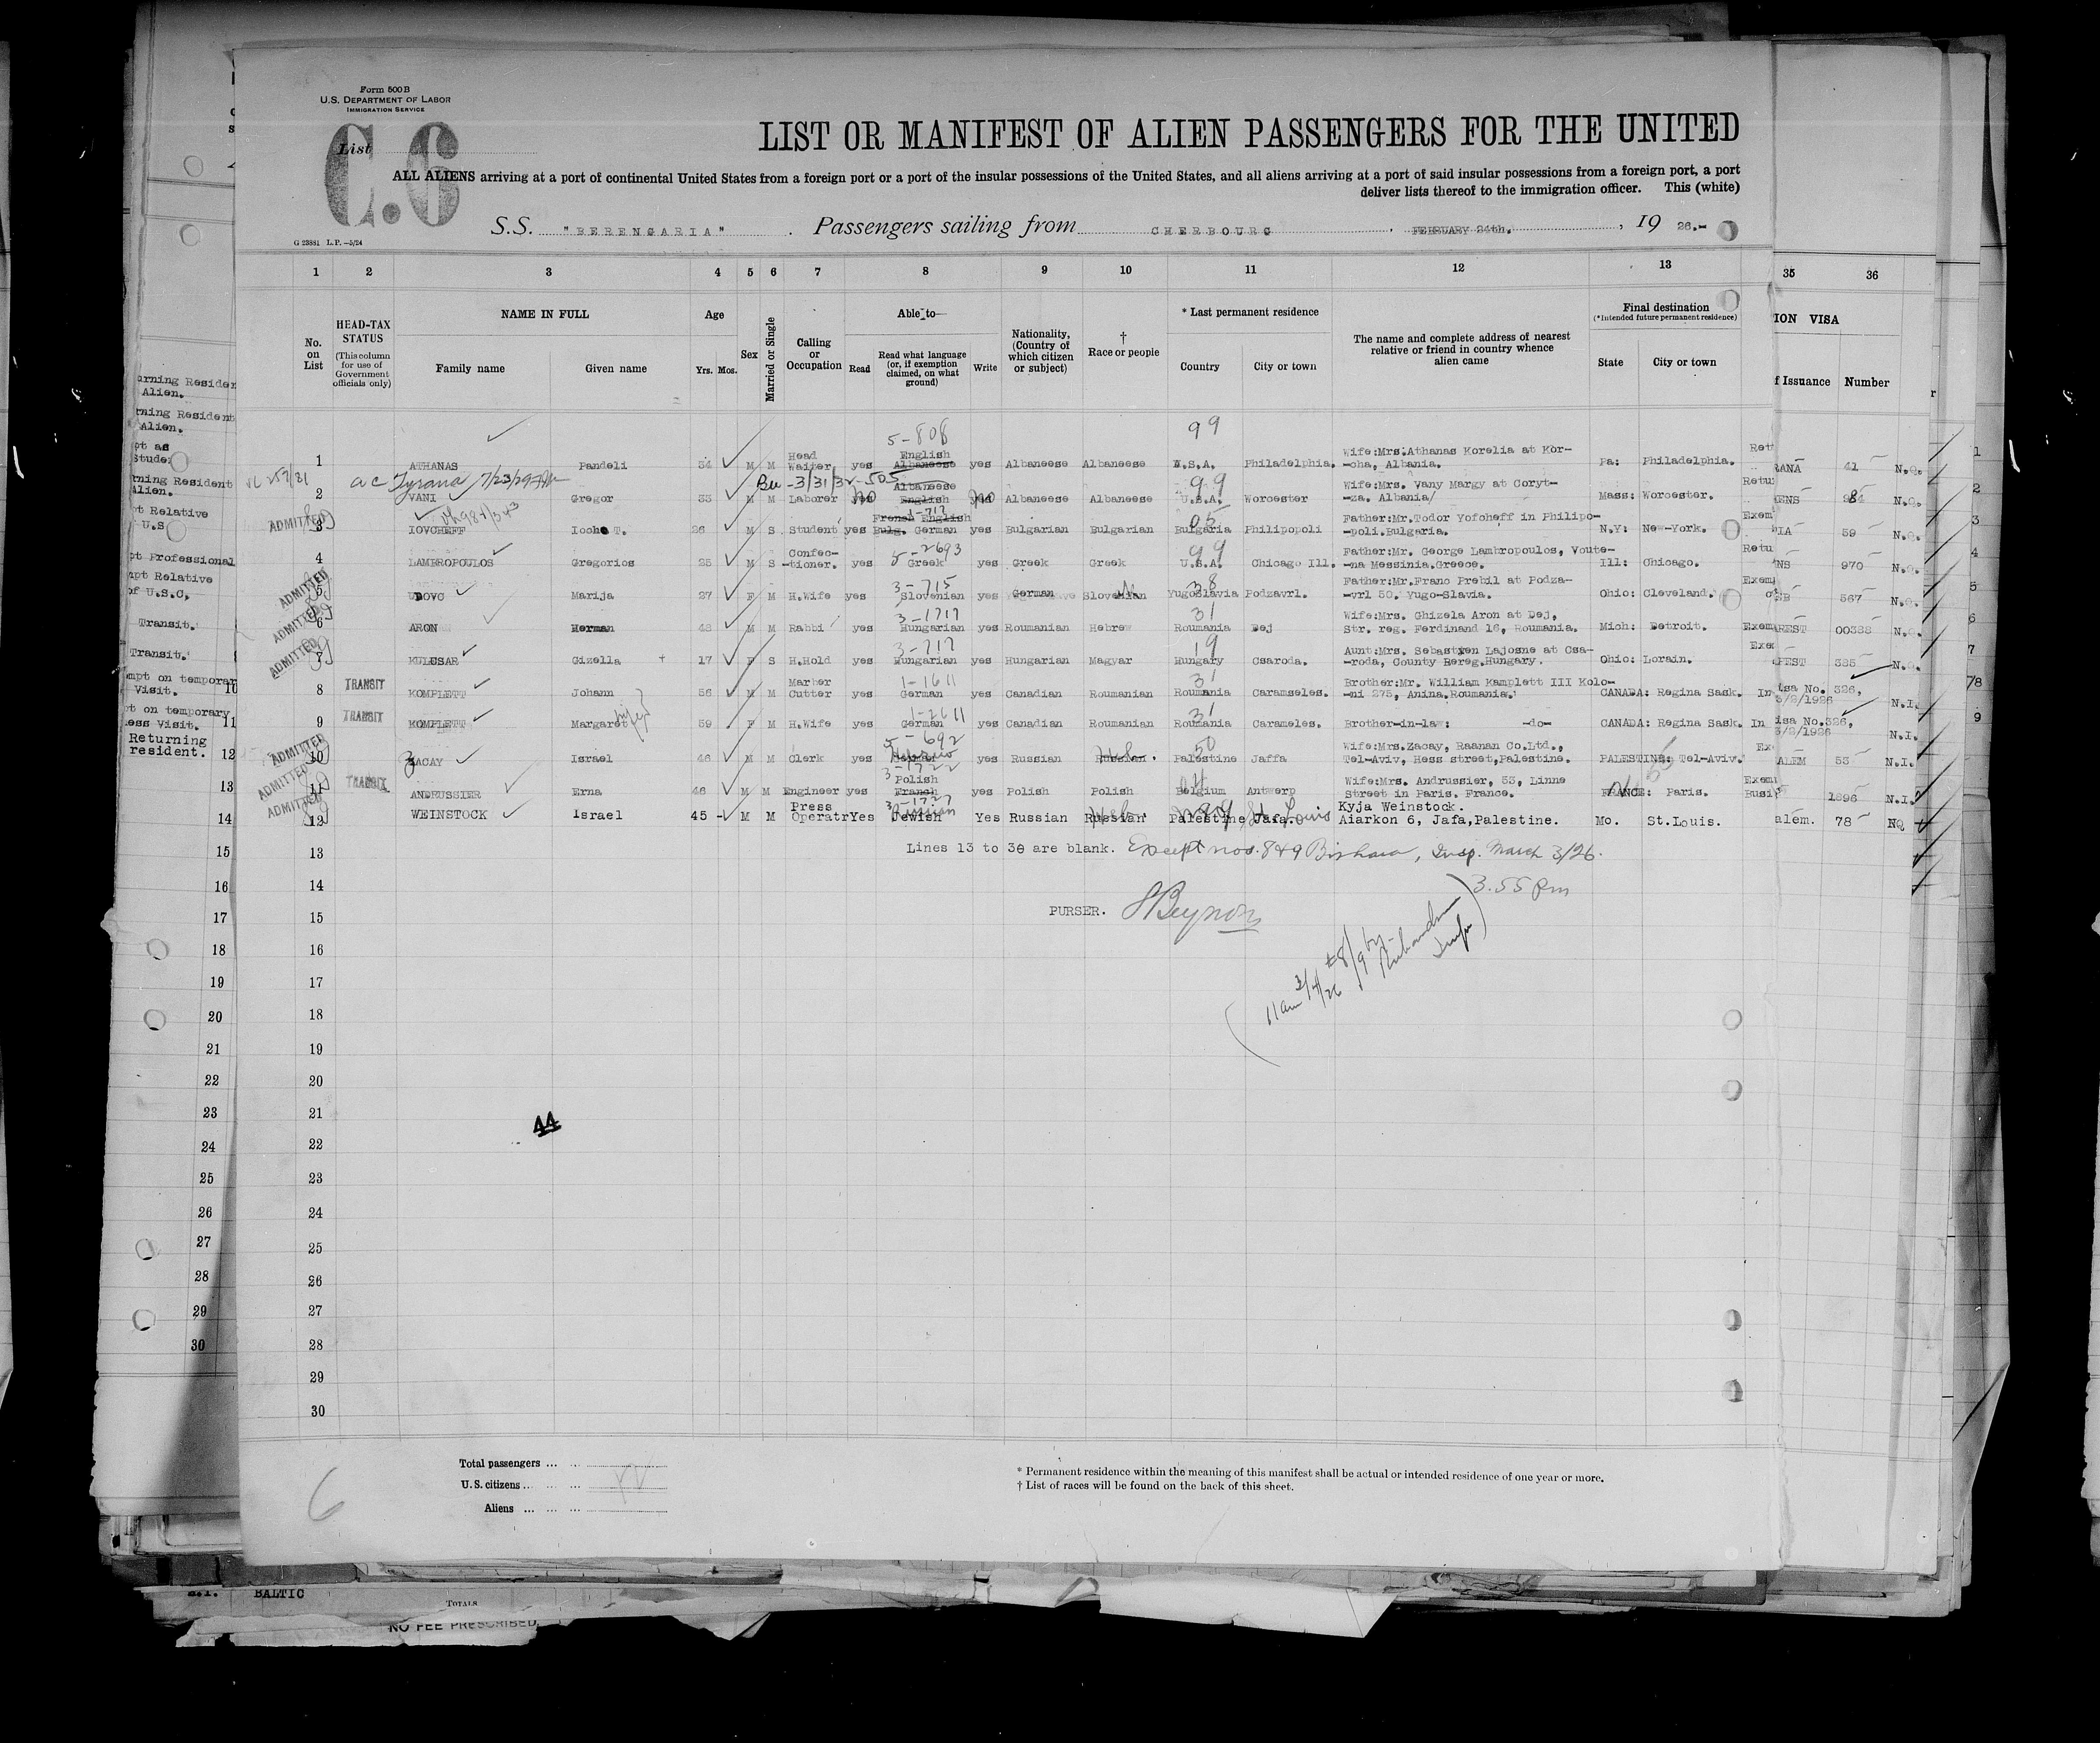 Form 500 B
U.S. DEPARTMENT OF LABOR
IMMIGRATION SERVICE
C.6
List
LIST OR MANIFEST OF ALIEN PASSENGERS FOR THE UNITED
ALL ALIENS arriving at a port of continental United States from a foreign port or a port of the insular possessions of the United States, and all aliens arriving at a port of said insular possessions from a foreign port, a port
deliver lists thereof to the immigration officer. This (white)
S.S. "BERENGARIA" . Passengers sailing from CHERBOURG . FEBRUARY 24th. , 19 26.-
G 23881 L.P.—5/24
1 2 3 4 5 6 7 8 9 10 11 12 13 35 36
No. on List
HEAD-TAX STATUS
(This column for use of Government officials only)
NAME IN FULL
Family name Given name
Age
Yrs. Mos.
Sex
Married or Single
Calling or Occupation
Able to—
Read
Read what language (or, if exemption claimed, on what ground)
Write
Nationality, (Country of which citizen or subject)
† Race or people
* Last permanent residence
Country City or town
The name and complete address of nearest relative or friend in country whence alien came
Final destination
(*Intended future permanent residence)
State City or town
ION VISA
f Issuance Number
5-808 99
1 ATHANAS Pandeli 34 M M Head Waiter yes English Albaneese yes Albaneese Albaneese U.S.A. Philadelphia. Wife:Mrs.Athanas Korelia at Kor-
-cha, Albania. Pa: Philadelphia. RANA 41 N.Q.
a c Tyrana 7/23/29 Bu - 3/31/32 - 505 99
2 VANI Gregor 33 M M Laborer no Albaneese English no Albaneese Albaneese U.S.A. Worcester Wife:Mrs. Vany Margy at Coryt-
-za. Albania/ Mass: Worcester. ENS N.Q.
ADMITTED 1-717 05
3 IOVCHEFF Iocho T. 26 M S Student yes French English Bulg. German yes Bulgarian Bulgarian Bulgaria Philipopoli Father:Mr.Todor Yofcheff in Philipo-
-poli.Bulgaria. N.Y: New-York. IA 59 N.Q.
5-2693 99
4 LAMBROPOULOS Gregorios 25 M S Confec-
-tioner. yes Greek yes Greek Greek U.S.A. Chicago Ill. Father:Mr. George Lambropoulos, Voute-
-na Messinia.Greece. Ill: Chicago. NS 970 N.Q.
ADMITTED 3-715 38
5 UDOVC Marija 27 F M H.Wife yes Slovenian yes German Slovenian Yugoslavia Podzavrl. Father:Mr.Franc Prebil at Podza-
-vrl 50. Yugo-Slavia. Ohio: Cleveland. 567 N.Q.
ADMITTED 3-1717 31
6 ARON Herman 48 M M Rabbi yes Hungarian yes Roumanian Hebrew Roumania Dej Wife:Mrs. Ghizela Aron at Dej,
Str. reg. Ferdinand 16, Roumania. Mich: Detroit. Exem REST 00388 N.Q.
ADMITTED 3-717 19
7 KULUSAR Gizella 17 F S H.Hold yes Hungarian yes Hungarian Magyar Hungary Csaroda. Aunt:Mrs. Sebastyen Lajosne at Csa-
-roda, County Bereg.Hungary. Ohio: Lorain. PEST 385 N.Q.
1-1611 31
8 TRANSIT KOMPLETT Johann 56 M M Marber Cutter yes German yes Canadian Roumanian Roumania Caramseles. Brother:Mr. William Kamplett III Kolo-
-ni 275, Anina.Roumania. CANADA: Regina Sask. In isa No. 326,
3/2/1926 N.I.
1-2611 31
9 TRANSIT KOMPLETT Margaret (wife) 59 F M H.Wife yes German yes Canadian Roumanian Roumania Carameles. Brother-in-law: -do- CANADA: Regina Sask. In isa No.326,
3/2/1926 N.I.
ADMITTED 5-692 50
10 ZACAY Israel 46 M M Clerk yes Hebrew yes Russian Russian. Palestine Jaffa Wife:Mrs.Zacay, Raanan Co.Ltd.,
Tel-Aviv, Hess street,Palestine. PALESTINE: Tel-Aviv. ALEM 53 N.I.
ADMITTED 3-1722
11 TRANSIT ANDRUSSIER Erna 46 M M Engineer yes Polish French yes Polish Polish Belgium Antwerp Wife:Mrs. Andrussier, 53, Linne
Street in Paris. France. FRANCE: Paris. 1896 N.I.
ADMITTED 3-1727
12 WEINSTOCK Israel 45 M M Press Operatr Yes Russian Jewish Yes Russian Russian Palestine Jafa. St. Louis Kyja Weinstock.
Aiarkon 6, Jafa,Palestine. Mo. St.Louis. alem. 78 NQ
Lines 13 to 30 are blank. Except nos. 8&9 Insp. March 3/26.
3.55 pm
PURSER. Beynon
11 am 3/4/26 #8/9 by
13
14
15
16
17
18
19
20
21
22
23
24
25
26
27
28
29
30
44
6
Total passengers
U.S. citizens
Aliens
* Permanent residence within the meaning of this manifest shall be actual or intended residence of one year or more.
† List of races will be found on the back of this sheet.
BALTIC
TOTALS
NO FEE PRESCRIBED